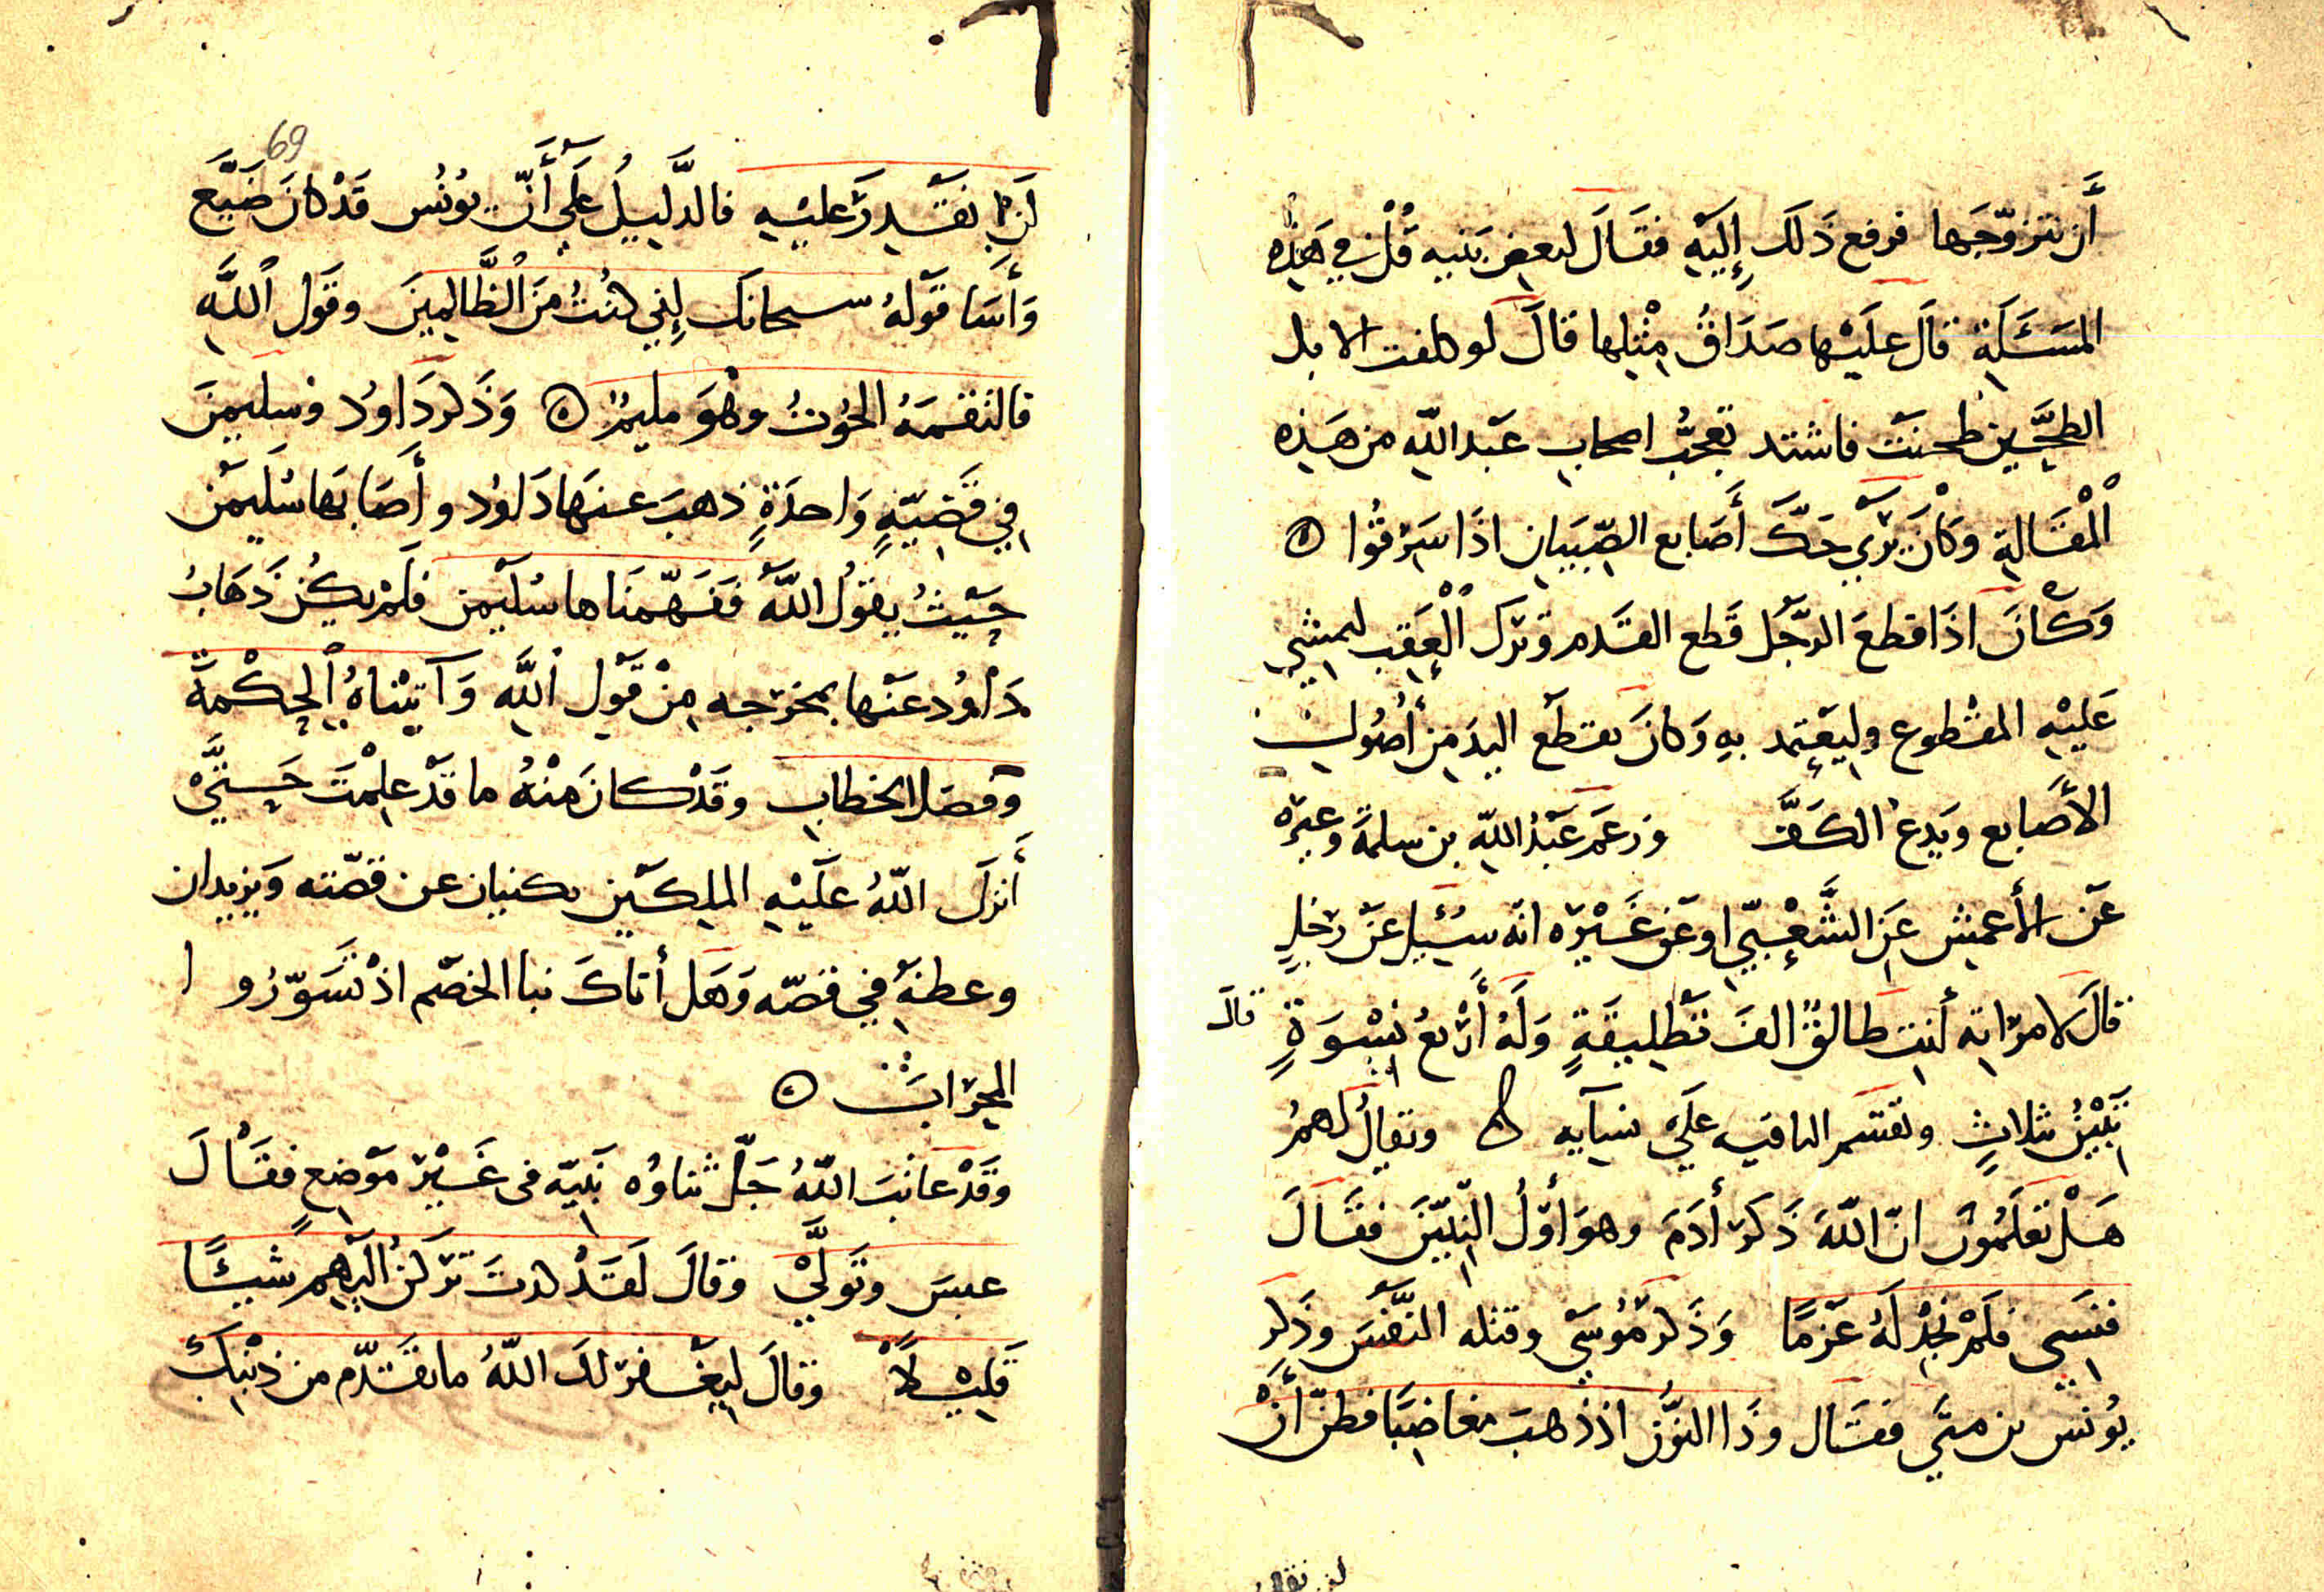 أَن يتزوّجَها فرفع ذَلكَ إِلَيْهِ فقَالَ لبعض بَنيه قُلْ في هَذِه
المَسَئَلَةِ قالَ عليْها صَدَاقُ مِثْلِها قالَ لو كلفت الابل
الطحين طحنَتْ فاشتد تعجُّب اصحاب عَبد اللّهِ من هَذِه
اْلمْقَالَةِ وَكانَ يَرَى حَكّ أَصَابع الصِّبيَانِ اذَا سَرَقُوا ۞
وَكانَ اذَا قطعَ الرَّجُل قَطع القَدم وترَك اْلعَقِب ليمشِي
عَليْهِ المقْطوع وليَعْتِمد بهِ وَكانَ يقطع اليَد مِن أُصُولِ
الأَصَابع ويَدع الكَفَّ وزعَم عَبْدُ اللّهِ بن سلمةَ وغيرَه
عَن الأعمِش عَنِ الشَّعْبِيّ او عَن غَيْرَه انّه سُئِيل عَنْ رَجُلٍ
قالَ لامرَاتِه أنتِ طالقٌ الفَ تَطلِيقَةٍ وَلَهُ أَرْبعُ نِسْوَةٍ قالَ
تَبِيْنُ بثلاثٍ وتقتسم الباقيه عَلَى نسَآيه ۞ ويُقالُ لهمُ
هَلْ تعْلَمُون انّ اللّهَ ذَكرَ أدَمَ وهوَ أَوّلُ النبِيّيَنَ فقَالَ
فنَسِىَ فلَمْ نَجِدْ لَهُ عَزمًا وَذَكرَ مُوسَى وقتله النّفْسَ وذكر
يُونسُ بن متَّى فقَال وذَا النّوُن اذ ذهبَ مغاضِبًا فظنّ أَنْ
69
لَنْ نقْدِرَ عَليْهِ فالدَّلِيلُ عَلَى أَنّ يوُنُس قَدْ كانَ ضَيَّع
وَأَسَا قوْلهُ سبحانَك إِنِي كنْتُ مِنَ الْظَّالِمِينَ وقَول اْللّهِ
فالتقَمهُ الحُوتُ وهُوَ مليمٌ ۞ وَذَكر دَاوُد وسليمنَ
فِي قضِيّةٍ وَاحدَةٍ ذهبَ عنهَا دَاوُد وأَصَابَها سُليَمْن
حَيْثُ يقوُل اللّهُ ففَهّمنَاها سُليْمن فلَمْ يكُن ذَهَابُ
دَاوُد عَنْها بمخرَجه مِنْ قَوْلِ اللّهِ وَآتيْناهُ اْلحِكْمَةَ
وَفصَل الخطابِ وقَدْ كانَ مِنْهُ ما قدْ علِمْتَ حَتّىَ
أَنزلَ اللّهُ عَليْهِ الملِكَيْن يكنيان عن قصّته وَيزيدان
وعظتهُ في قصّه وَهَل أتاكَ نبا الخصْم اذْ تسَوّرُوا
المحرَابَ ۞
وقَدْ عَاتبَ اللّهُ جَلّ ثناوُه نَبيّه في غَيْرِ مَوْضعٍ فقَالَ
عبسَ وتَوَلَّى وقالَ لَقَدْ كدتَ تَرَكَنُ اليهِمِ شيئًا
قَلِيْلاً وقالَ لِيَغْفرَ لكَ اللّهُ ما تقَدّم من ذنْبِكَ
لن نقد